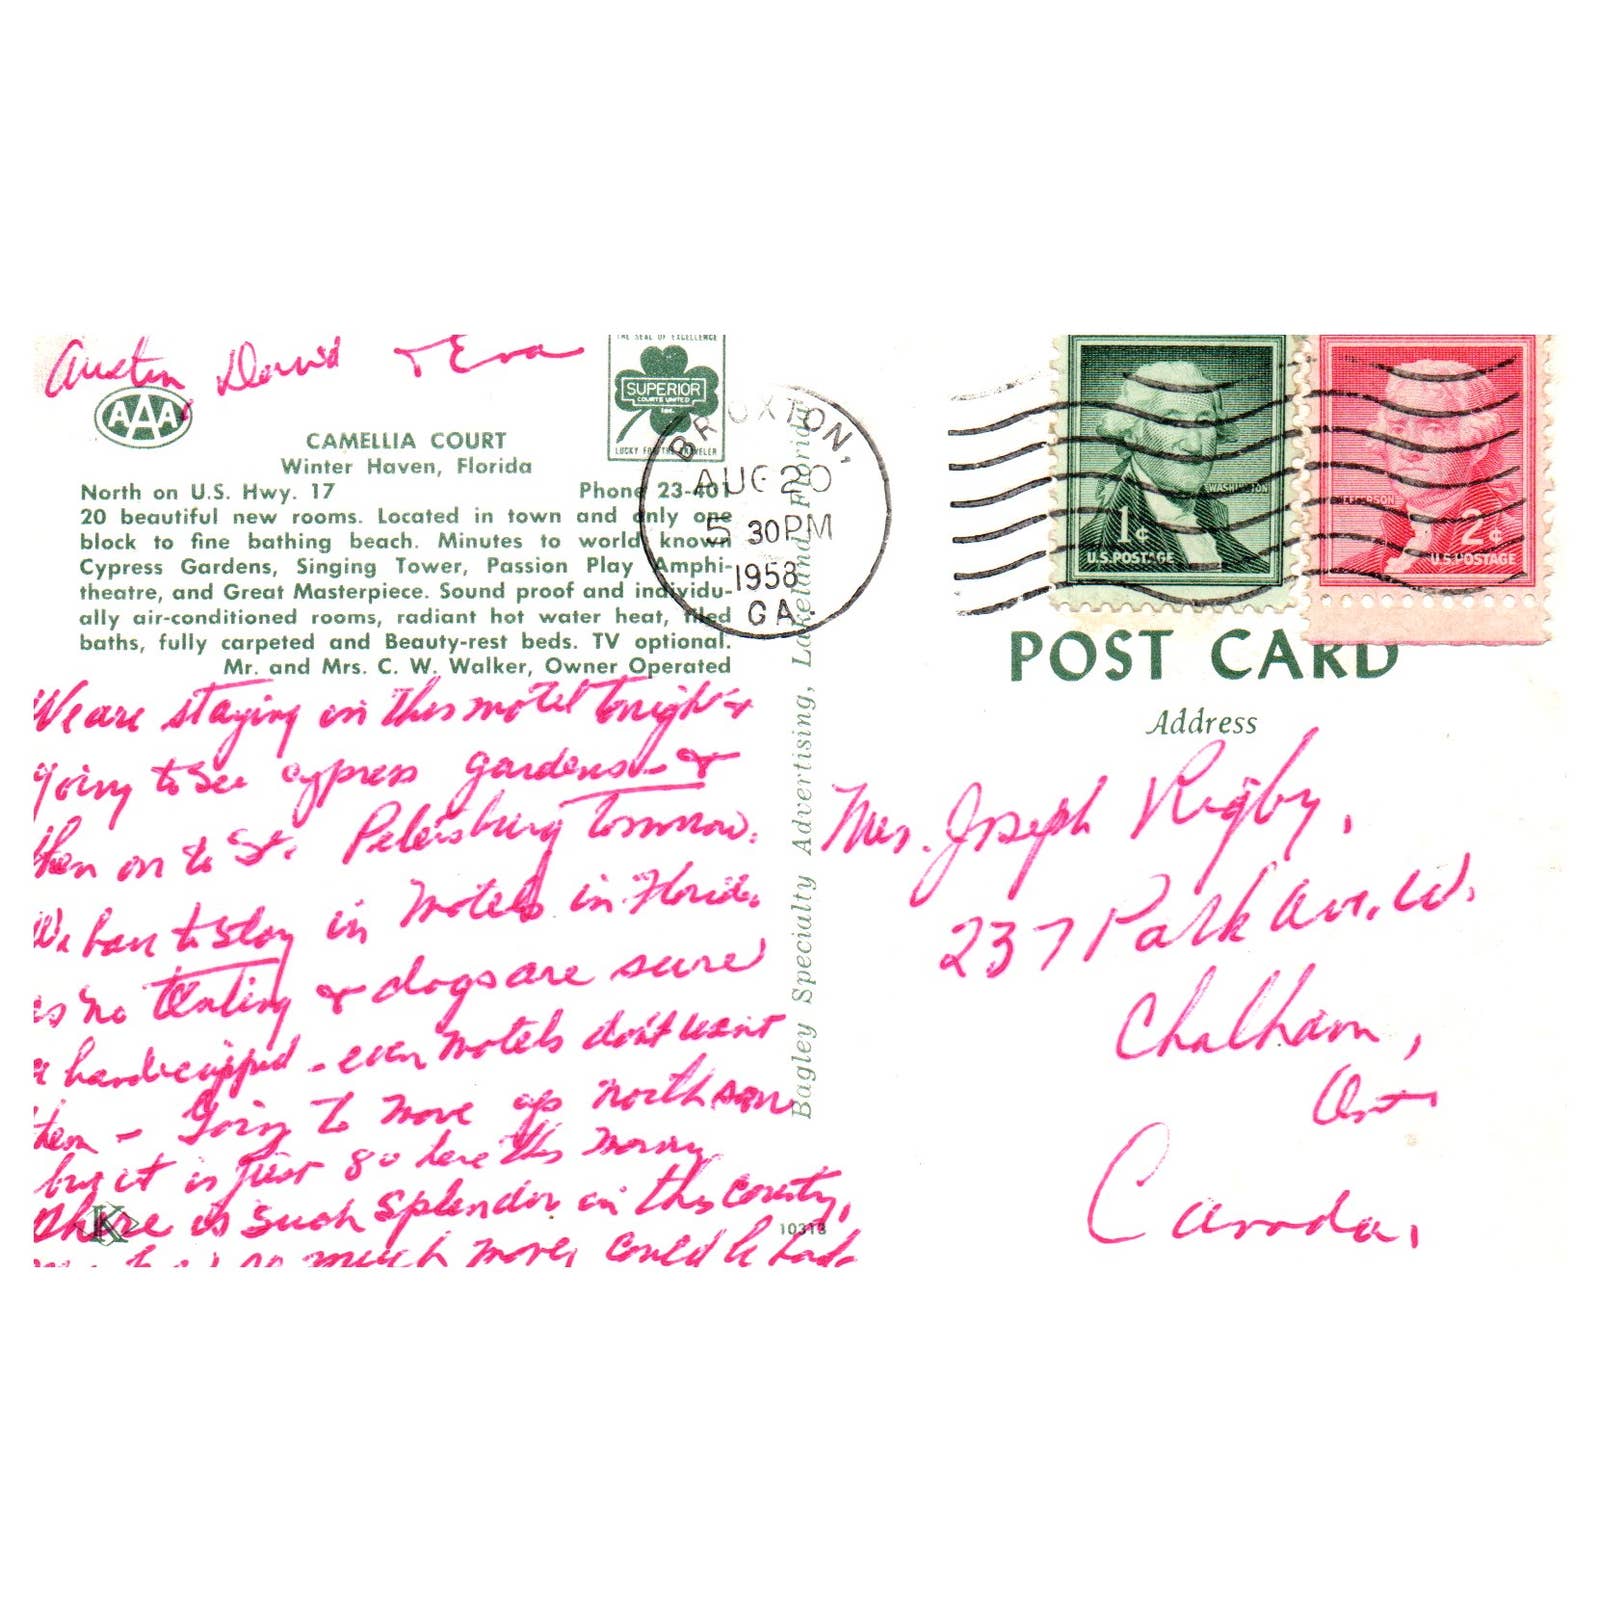 Austin, David & Eva
THE SEAL OF EXCELLENCE
SUPERIOR
COURTS UNITED
Inc.
LUCKY FOR THE TRAVELER
AAA
CAMELLIA COURT
Winter Haven, Florida
North on U.S. Hwy. 17 Phone 23-401
20 beautiful new rooms. Located in town and only one
block to fine bathing beach. Minutes to world known
Cypress Gardens, Singing Tower, Passion Play Amphi-
theatre, and Great Masterpiece. Sound proof and individu-
ally air-conditioned rooms, radiant hot water heat, tiled
baths, fully carpeted and Beauty-rest beds. TV optional.
Mr. and Mrs. C. W. Walker, Owner Operated
We are staying in this motel tonight &
going to see cypress gardens &
then on to St. Petersburg tomorrow.
We have to stay in motels in Florida
as no tenting & dogs are sure
a handicapped - even motels don't want
them - Going to move up north soon
but it is just 80 here this morning
There is such splendor in this country,
so much more could be had
K
10318
Bagley Specialty Advertising, Lakeland, Florida
BROXTON,
AUG 20
5 30 PM
1958
GA.
WASHINGTON
1¢
U.S. POSTAGE
JEFFERSON
2¢
U.S. POSTAGE
POST CARD
Address
Mrs. Joseph Rigby,
237 Park Ave. W.
Chatham,
Ont
Canada,